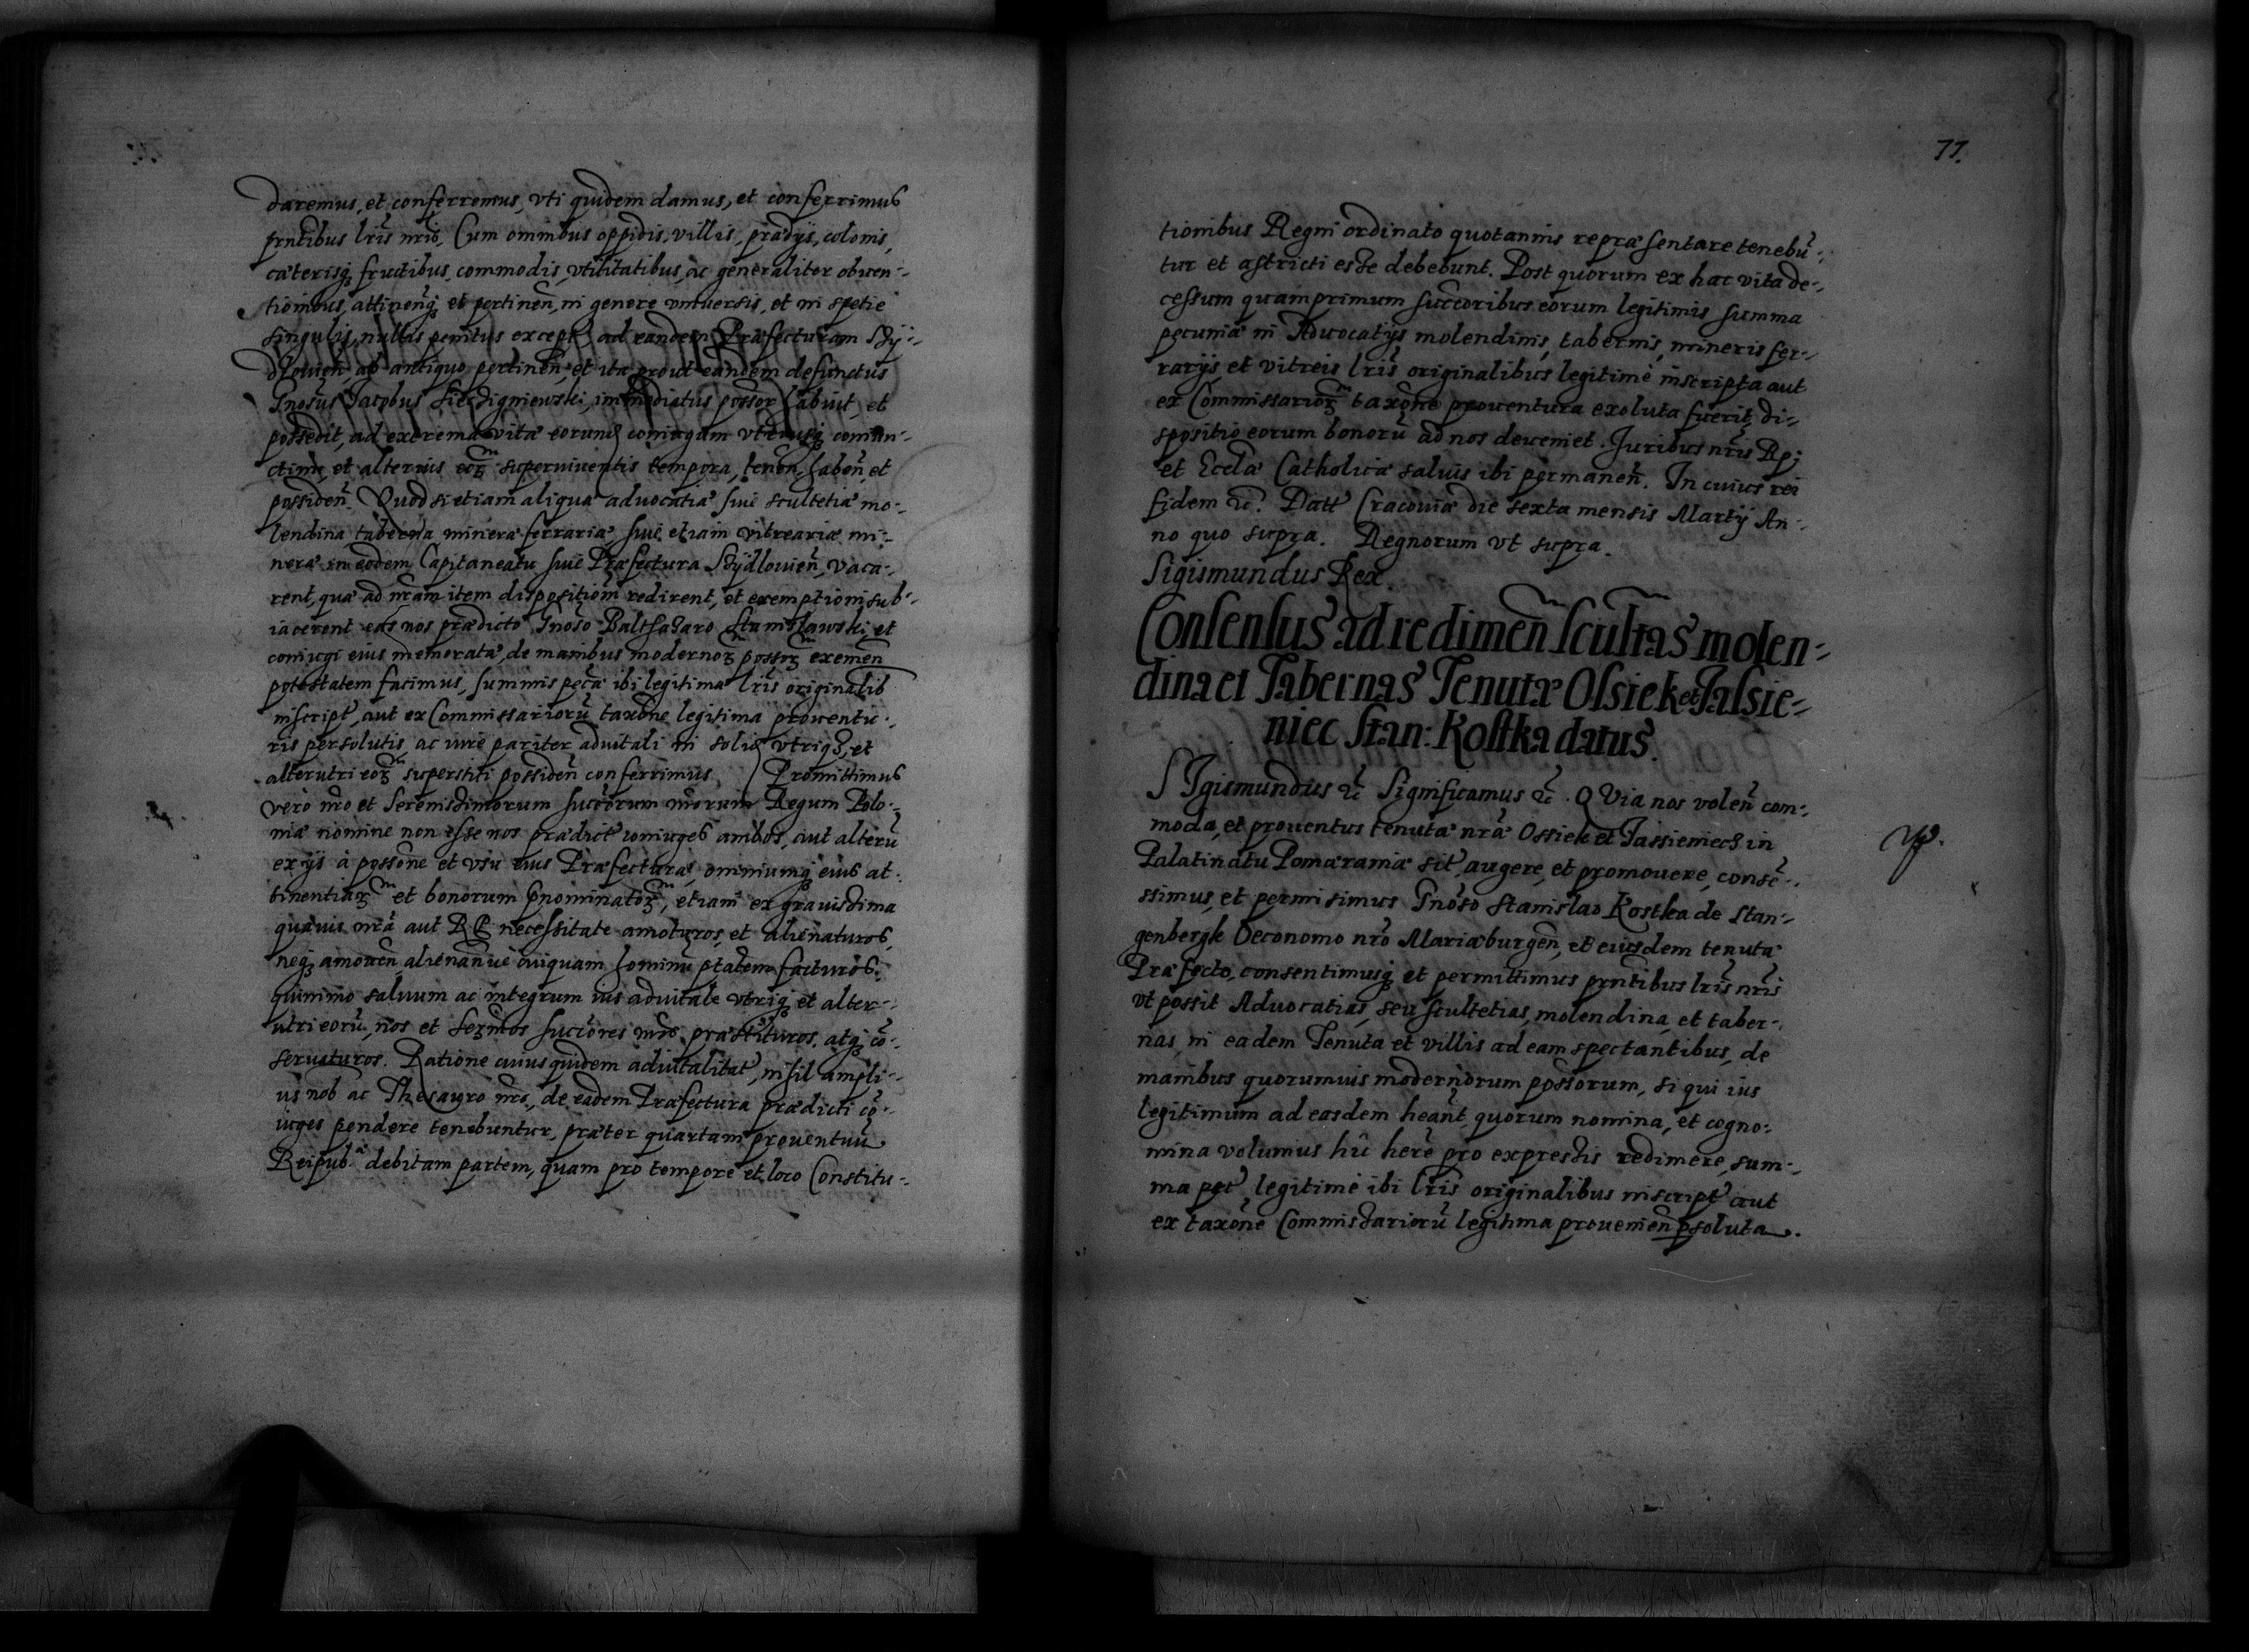 daremus, et conferremus, vti quidem damus, et conferrimus
prntibus lris nris, Cum omnibus oppidis, villis, prædijs, colonis,
cæterisq fructibus, commodis, vtilitatibus, ac generaliter obuen-
tionibus, attinenq et pertinen, in genere vniuersis, et in spetie
singulis, nullis penitus except ad eandem Præfecturam Szy-
dlouien, ab antiquo pertinen, et ita prout eandem defunctus
Gnosus Jacobus Siecigniewski, immediatus possor habuit, et
possedit, ad extrema vitæ eorund coniugum vtriusq coniun-
ctim, et alterius eorz superuiuentis tempora, tenen, haben, et
possiden. Quod si etiam aliqua aduocatia siue scultetia mo-
lendina taberna minera ferraria, siue etiam vitreariæ mi-
neræ in eodem Capitaneatu siue Præfectura Szydlouien, vaca-
rent, quæ ad nram item dispositiom redirent, et exemptioni sub-
iacerent eas nos prædicto Gnoso Balthazaro Stanislawski, et
coniugi eius memorata, de manibus modernorz possorz eximen
potestatem facimus, summis pecia ibi legitima lris originalib
inscript, aut ex Commissarioru taxone legitima prouentu-
ris persolutis, ac iure pariter aduitali in solid vtriq, et
alterutri eorz superstiti possiden conferrimus Promittimus
vero nro et Serenissimorum succorum nrorum Regum Polo-
niæ nomine non esse nos prædict coniuges ambos, aut alteru
ex ijs à possone et vsu eius Præfecturæ, omniumq eius at-
tinentiarz et bonorum pnominatorz, etiam ex grauissima
quauis nra aut RP necessitate amoturos, et alienaturos,
neq amouen, alienanue cuiquam hominu ptatem facturos.
quinimo saluum ac integrum ius aduitale vtriq et alter-
utri eoru, nos et Sermos succores nros præstituros, atq co-
seruaturos. Ratione cuius quidem aduitalitat, nihil ampli-
us nob ac Thesauro nro, de eadem Præfectura prædicti co-
iuges pendere tenebuntur, præter quartam prouentuu
Reipub. debitam partem, quam pro tempore et loco Constitu-
77.
tionibus Regni ordinato quotannis repræsentare tenebu-
tur et astricti esse debebunt. Post quorum ex hac vita de-
cessum quamprimum succoribus eorum legitimis summa
pecuniæ in Aduocatijs molendinis, tabernis, mineris fer-
rarijs et vitreis lris originalibus legitimè inscripta aut
ex Commissariorz taxone prouentura exoluta fuerit, di-
spositio eorum bonoru ad nos deueniet. Juribus nris Rp:
et Eccla Catholicæ saluis ibi permanen. In cuius rei
fidem &c. Datt Cracouiæ die sexta mensis Martij An-
no quo supra. Regnorum vt supra.
Sigismundus Rex.
Consensus ad redimen scultas molen-
dina et Tabernas Tenutæ Ossiek et Jassie-
niec Stan: Kostka datus.
SIgismundus &c Significamus &c. QVia nos volen com-
moda, et prouentus tenutæ nræ Ossiek et Jassieniecz in
Palatinatu Pomæraniæ sit, augere, et promouere, conse-
ssimus, et permisimus Gnoso Stanislao Kostka de Stan-
genbergk Oeconomo nro Mariæburgen, et eiusdem tenutæ
Præfecto, consentimusq et permittimus prntibus lris nris
vt possit Aduocatias, seu scultetias, molendina, et taber-
nas, in eadem Tenuta et villis ad eam spectantibus, de
manibus quorumuis modernorum possorum, si qui ius
legitimum ad easdem heant, quorum nomina, et cogno-
mina volumus hic here pro expressis redimere, sum-
ma pet legitimè ibi lris originalibus inscript aut
ex taxone Commissarioru legitima prouenien psoluta.